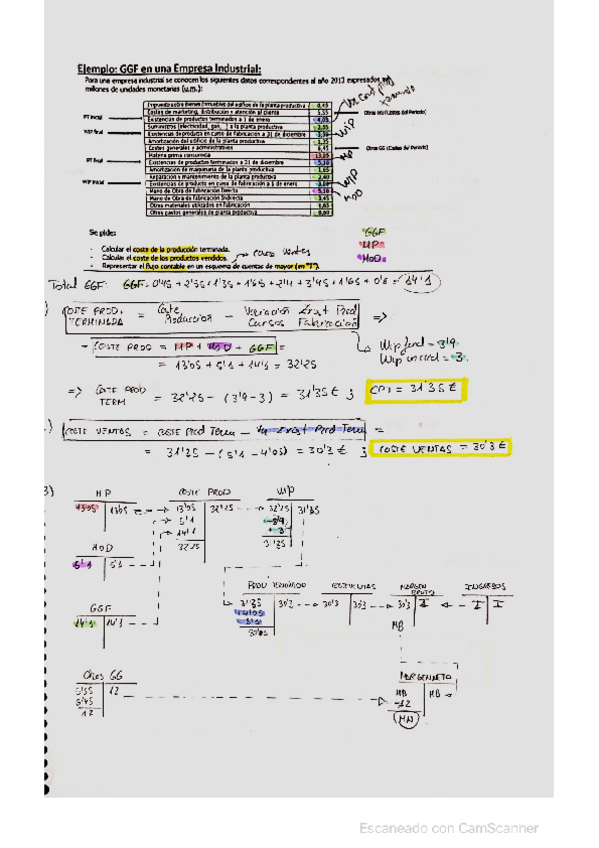 Ejemplo: GGF en una Empresa Industrial:
Para una empresa industrial se conocen los siguientes datos correspondientes al año 2013 expresados en
millones de unidades monetarias (u.m.):
Impuesto sobre bienes inmuebles del edificio de la planta productiva 0,45
Costes de marketing, distribución y atención al cliente 5,55
PT Inicial
Existencias de productos terminados a 1 de enero 4,05
Suministros (electricidad, gas, ...) a la planta productiva 2,55
WIP final
Existencias de producto en curso de fabricación a 31 de diciembre
Amortización del edificio de la planta productiva 1,35
Costes generales y administrativos 6,45
Otros GG (Costes del Periodo)
Materia prima consumida 13,05
PT final
Existencias de productos terminados a 31 de diciembre 5,10
Amortización de maquinaria de la planta productiva 1,65
Reparación y mantenimiento de la planta productiva 2,40
WIP Inicial
Existencias de producto en curso de fabricación a 1 de enero
Mano de Obra de Fabricación Directa 5,10
Mano de Obra de Fabricación Indirecta 3,45
Otros materiales utilizados en fabricación 1,65
Otros gastos generales de planta productiva 0,60
WIP
WIP
MOD
Se pide:
GGF
MP
MOD
- Calcular el coste de la producción terminada.
- Calcular el coste de los productos vendidos. → coste ventas
- Representar el flujo contable en un esquema de cuentas de mayor (en "T").
Total GGF: GGF = 0'45 + 2'55 + 1'35 + 1'65 + 2'4 + 3'45 + 1'65 + 0'6 = 14'1
COSTE PROD. TERMINADA = Coste Producción - Variación Exist Prod Cursos Fabricación =>
WIP final = 3'9
WIP inicial = 3
- COSTE PROD = MP + MOD + GGF =
= 13'05 + 5'1 + 14'1 = 32'25
=> COSTE PROD TERM = 32'25 - (3'9 - 3) = 31'35 € ; CPT = 31'35 €
COSTE VENTAS = COSTE Prod Term - Var Exist Prod Term =
= 31'35 - (5'1 - 4'05) = 30'3 € ; COSTE VENTAS = 30'3 €
3)
MP
COSTE PROD
WIP
13'05 13'05 13'05 32'25 32'25 31'35
5'1
14'1
32'25
3'9
3
MOD
5'1 5'1
PROD TERMINADO
COSTE VENTAS
MARGEN BRUTO
INGRESOS
31'35 30'3 30'3 30'3 30'3 I I I
GGF
14'1 14'1
MB
Otros GG
5'55 12
6'45
12
MARGEN NETO
MB MB
-12
MN
Escaneado con CamScanner